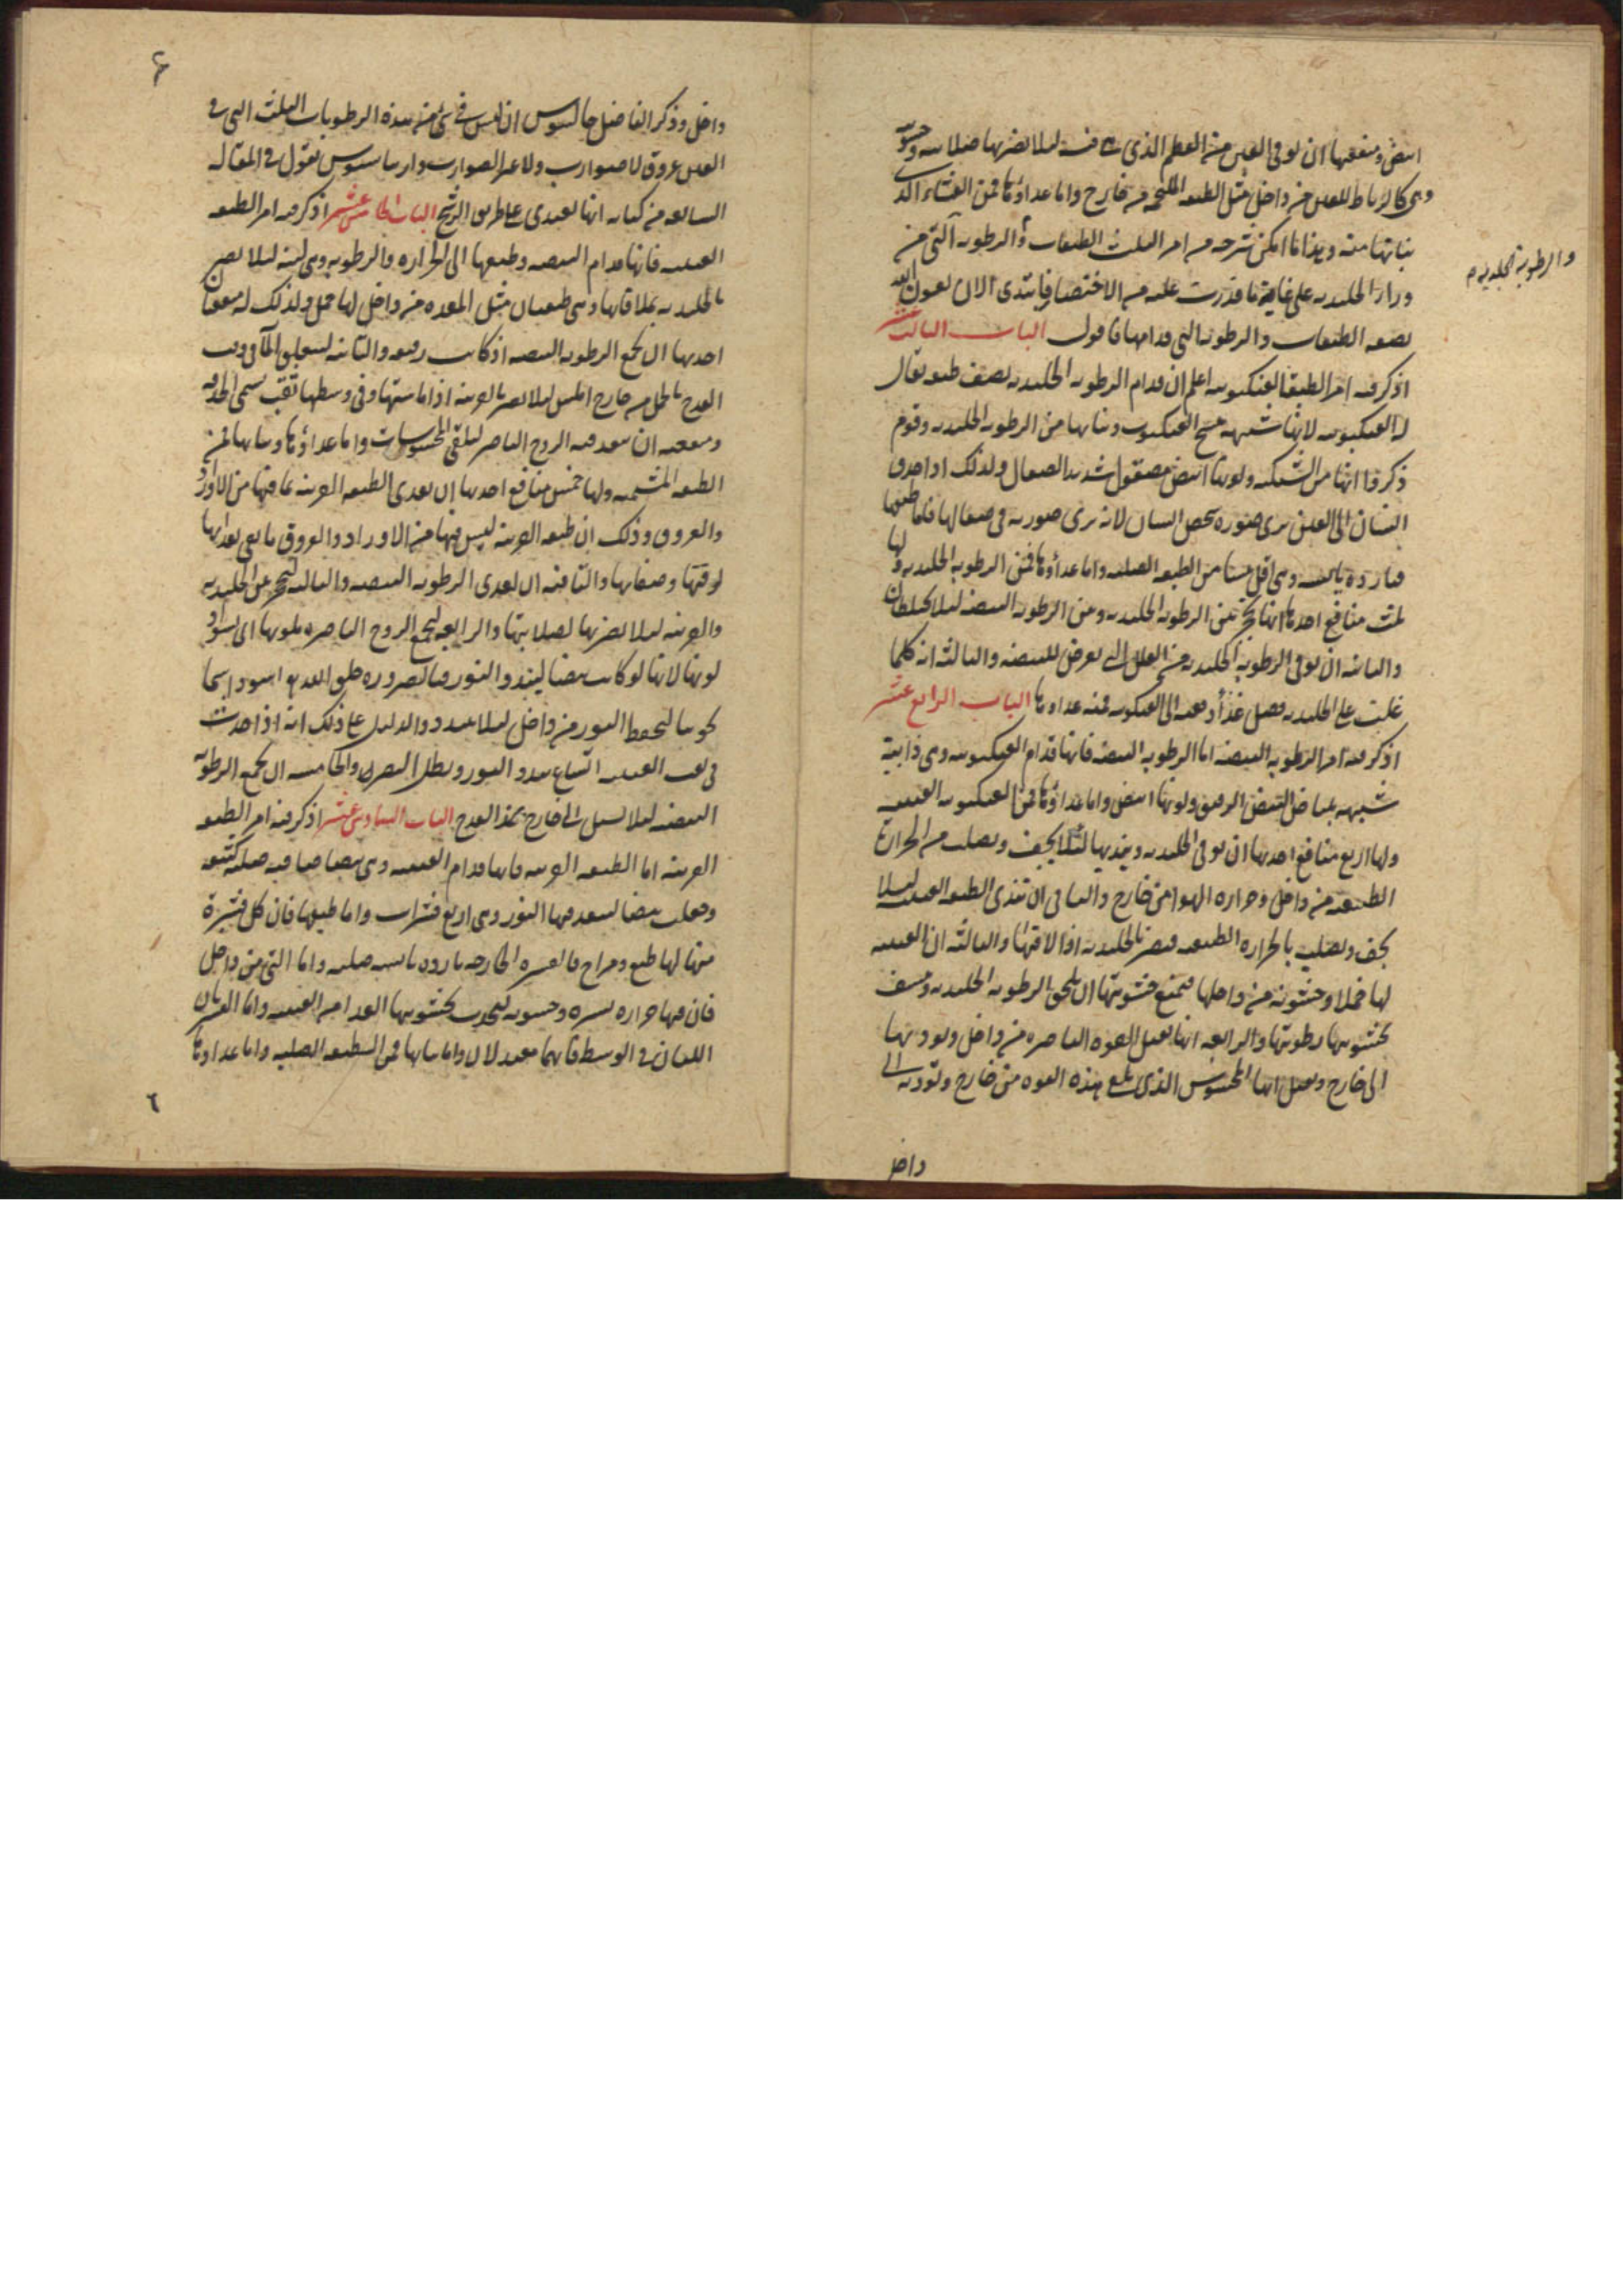 ابيض ومنفعتها ان توقى العين من العظم الذى هى فيه ليلا يضر بها صلابته وخشونته
وهى كالرباط للعين من داخل مثل الطبقه الملتحمه من خارج واما غداؤها فمن الغشاء الذى
نباتها منه وهذا ما امكن شرحه من امر الثلث الطبقات والرطوبه التى من
والرطوبة الجليدية
وراء الجليديه على غاية ما قدرت عليه من الاختصار فابتدى الان بعون الله
بصفه الطبقات والرطوبه التى قدامها فاقول الباب الثالث عشر
اذكر فيه امر الطبقة العنكبوتيه اعلم ان قدام الرطوبه الجليديه نصف طبقه يقال
له العنكبوتيه لانها شبيهه بنسج العنكبوت ونباتها من الرطوبه الجليديه وقوم
ذكروا انها من الشبكيه ولونها ابيض مصقول شديد الصقال ولذلك اذا احدق
انسان الى العين يرى صوره شخص انسان لانه يرى صورته فى صقالها فاما طبعها
فبارده يابسه وهى اقل يبسا من الطبقه الصلبه واما غداؤها فمن الرطوبه الجليديه ولها
ثلث منافع احدها انها تحجز بين الرطوبه الجليديه وبين الرطوبه البيضيه ليلا تختلطان
والثانيه ان توقى الرطوبة الجليديه من العلل التى تعرض للبيضيه والثالثه انه كلما
غلبت على الجليديه فضل غذاء دفعته الى العنكبوتيه فمنه غداؤها الباب الرابع عشر
اذكر فيه امر الرطوبه البيضيه اما الرطوبه البيضيه فانها قدام العنكبوتيه وهى ذايبة
شبيهه ببياض البيض الرقيق ولونها ابيض واما غداؤها فمن العنكبوتيه العنبيه
ولها اربع منافع احدها ان توقى الجليديه وتنديها لئلا تجف وتصلب من الحرارة
الطبيعيه من داخل وحراره الهوا من خارج والثانى ان تندى الطبقه العنبيه ليلا
تجف وتصلب بالحراره الطبيعيه فتضر بالجليديه اذا لاقتها والثالثه ان العنبيه
لها خملا وخشونه من داخلها فتمنع خشونتها ان تلحق الرطوبه الجليديه وتنشف
بخشونتها رطوبتها والرابعه انها تقبل القوه الباصره من داخل وتوديها
الى خارج وتقبل ايضا المحسوس الذى تلقى هذه القوه من خارج وتوديه الى
داخل
داخل وذكر الفاضل جالينوس ان ليس فى شئ من هذه الرطوبات الثلث التى فى
العين عروق لا ضوارب ولا غير الضوارب يقول فى المقاله
السابعه من كتابه انها تغتدى على طريق الرشح الباب الخامس عشر اذكر فيه امر الطبقه
العنبيه فانها قدام البيضيه وطبعها الى الحراره والرطوبه وهى لينه ليلا تضر
بالجليديه بملاقاتها وهى طبقتان مثل المعده من داخل لها خمل ولذلك له منفعتان
احديها ان تجمع الرطوبه البيضيه اذ كانت رقيقه والثانيه ليتعلق الما فى وقت
القدح بالخمل من خارج املس ليلا تضر بالقرنيه اذا ماستها وفى وسطها ثقب يسمى الحدقه
ومنفعته ان ينفد فيه الروح الباصر ليلقى المحسوسات واما غداؤها ونباتها فمن
الطبقه المشيميه ولها خمس منافع احديها ان تغدى الطبقه القرنيه بما فيها من الاوراد
والعروق وذلك ان طبقه القرنيه ليس فيها من الاوراد والعروق ما يفى بغدايها
لرقتها وصفايها والثانيه ان تغدى الرطوبه البيضيه والثالثه لتحجز بين الجليديه
والقرنيه ليلا تضر بها لصلابتها والرابعه لتجمع الروح الباصره بلونها اى لسواد
لونها لانها لو كانت بيضا ليبدد النور فبالضروره خلق الله هذا اسود
كحوليا لتحفظ النور من داخل ليلا يتبدد والدليل على ذلك انه اذا حدث
فى ثقب العنبيه اتساع تبدد النور وبطل البصر والخامسه ان تجمع الرطوبه
البيضيه ليلا تسيل الى خارج بهذا القدح الباب السادس عشر اذكر فيه امر الطبقه
القرنيه اما الطبقه القرنيه فانها قدام العنبيه وهى بيضا صافيه صلبه كثيفه
وجعلت بيضا لينفد فيها النور وهى اربع قشرات واما طبعها فان كل قشرة
منها لها طبع ومزاج فالقشره الخارجه بارده يابسه صلبه واما التى من داخل
فان فيها حراره يسيره وخشونه لتجذب بخشونتها الغدا من العنبيه واما القشرتان
اللتان فى الوسط فانهما معتدلان واما نباتها فمن الطبقه الصلبه واما غداؤها
٦